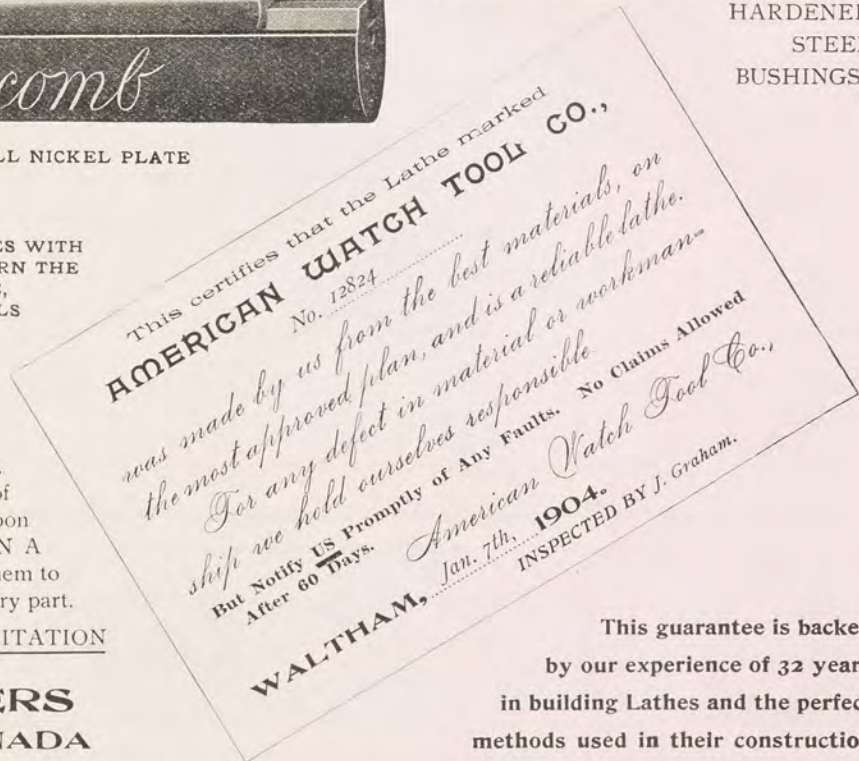 comb
HARDENED
STEEL
BUSHINGS
LL NICKEL PLATE
ES WITH
RN THE
LS
This certifies that the Lathe marked
AMERICAN WATCH TOOL CO.,
No. 12824
was made by us from the best materials, on
the most approved plan, and is a reliable lathe.
For any defect in material or workman-
ship we hold ourselves responsible
But Notify US Promptly of Any Faults. No Claims Allowed
After 60 Days.
American Watch Tool Co.,
WALTHAM, Jan. 7th, 1904.
INSPECTED BY J. Graham.
of
pon
N A
em to
ry part.
ITATION
ERS
NADA
This guarantee is backe
by our experience of 32 year
in building Lathes and the perfec
methods used in their constructio